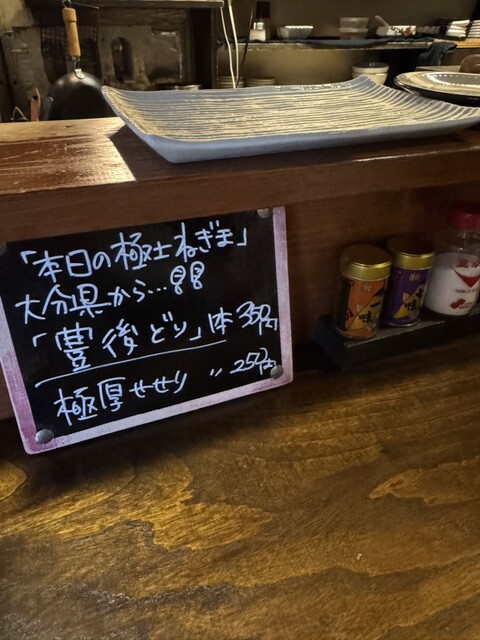 「本日の極上ねぎま」
大分県から...!!
「豊後どり」1本350円
極厚せせり 〃 250円